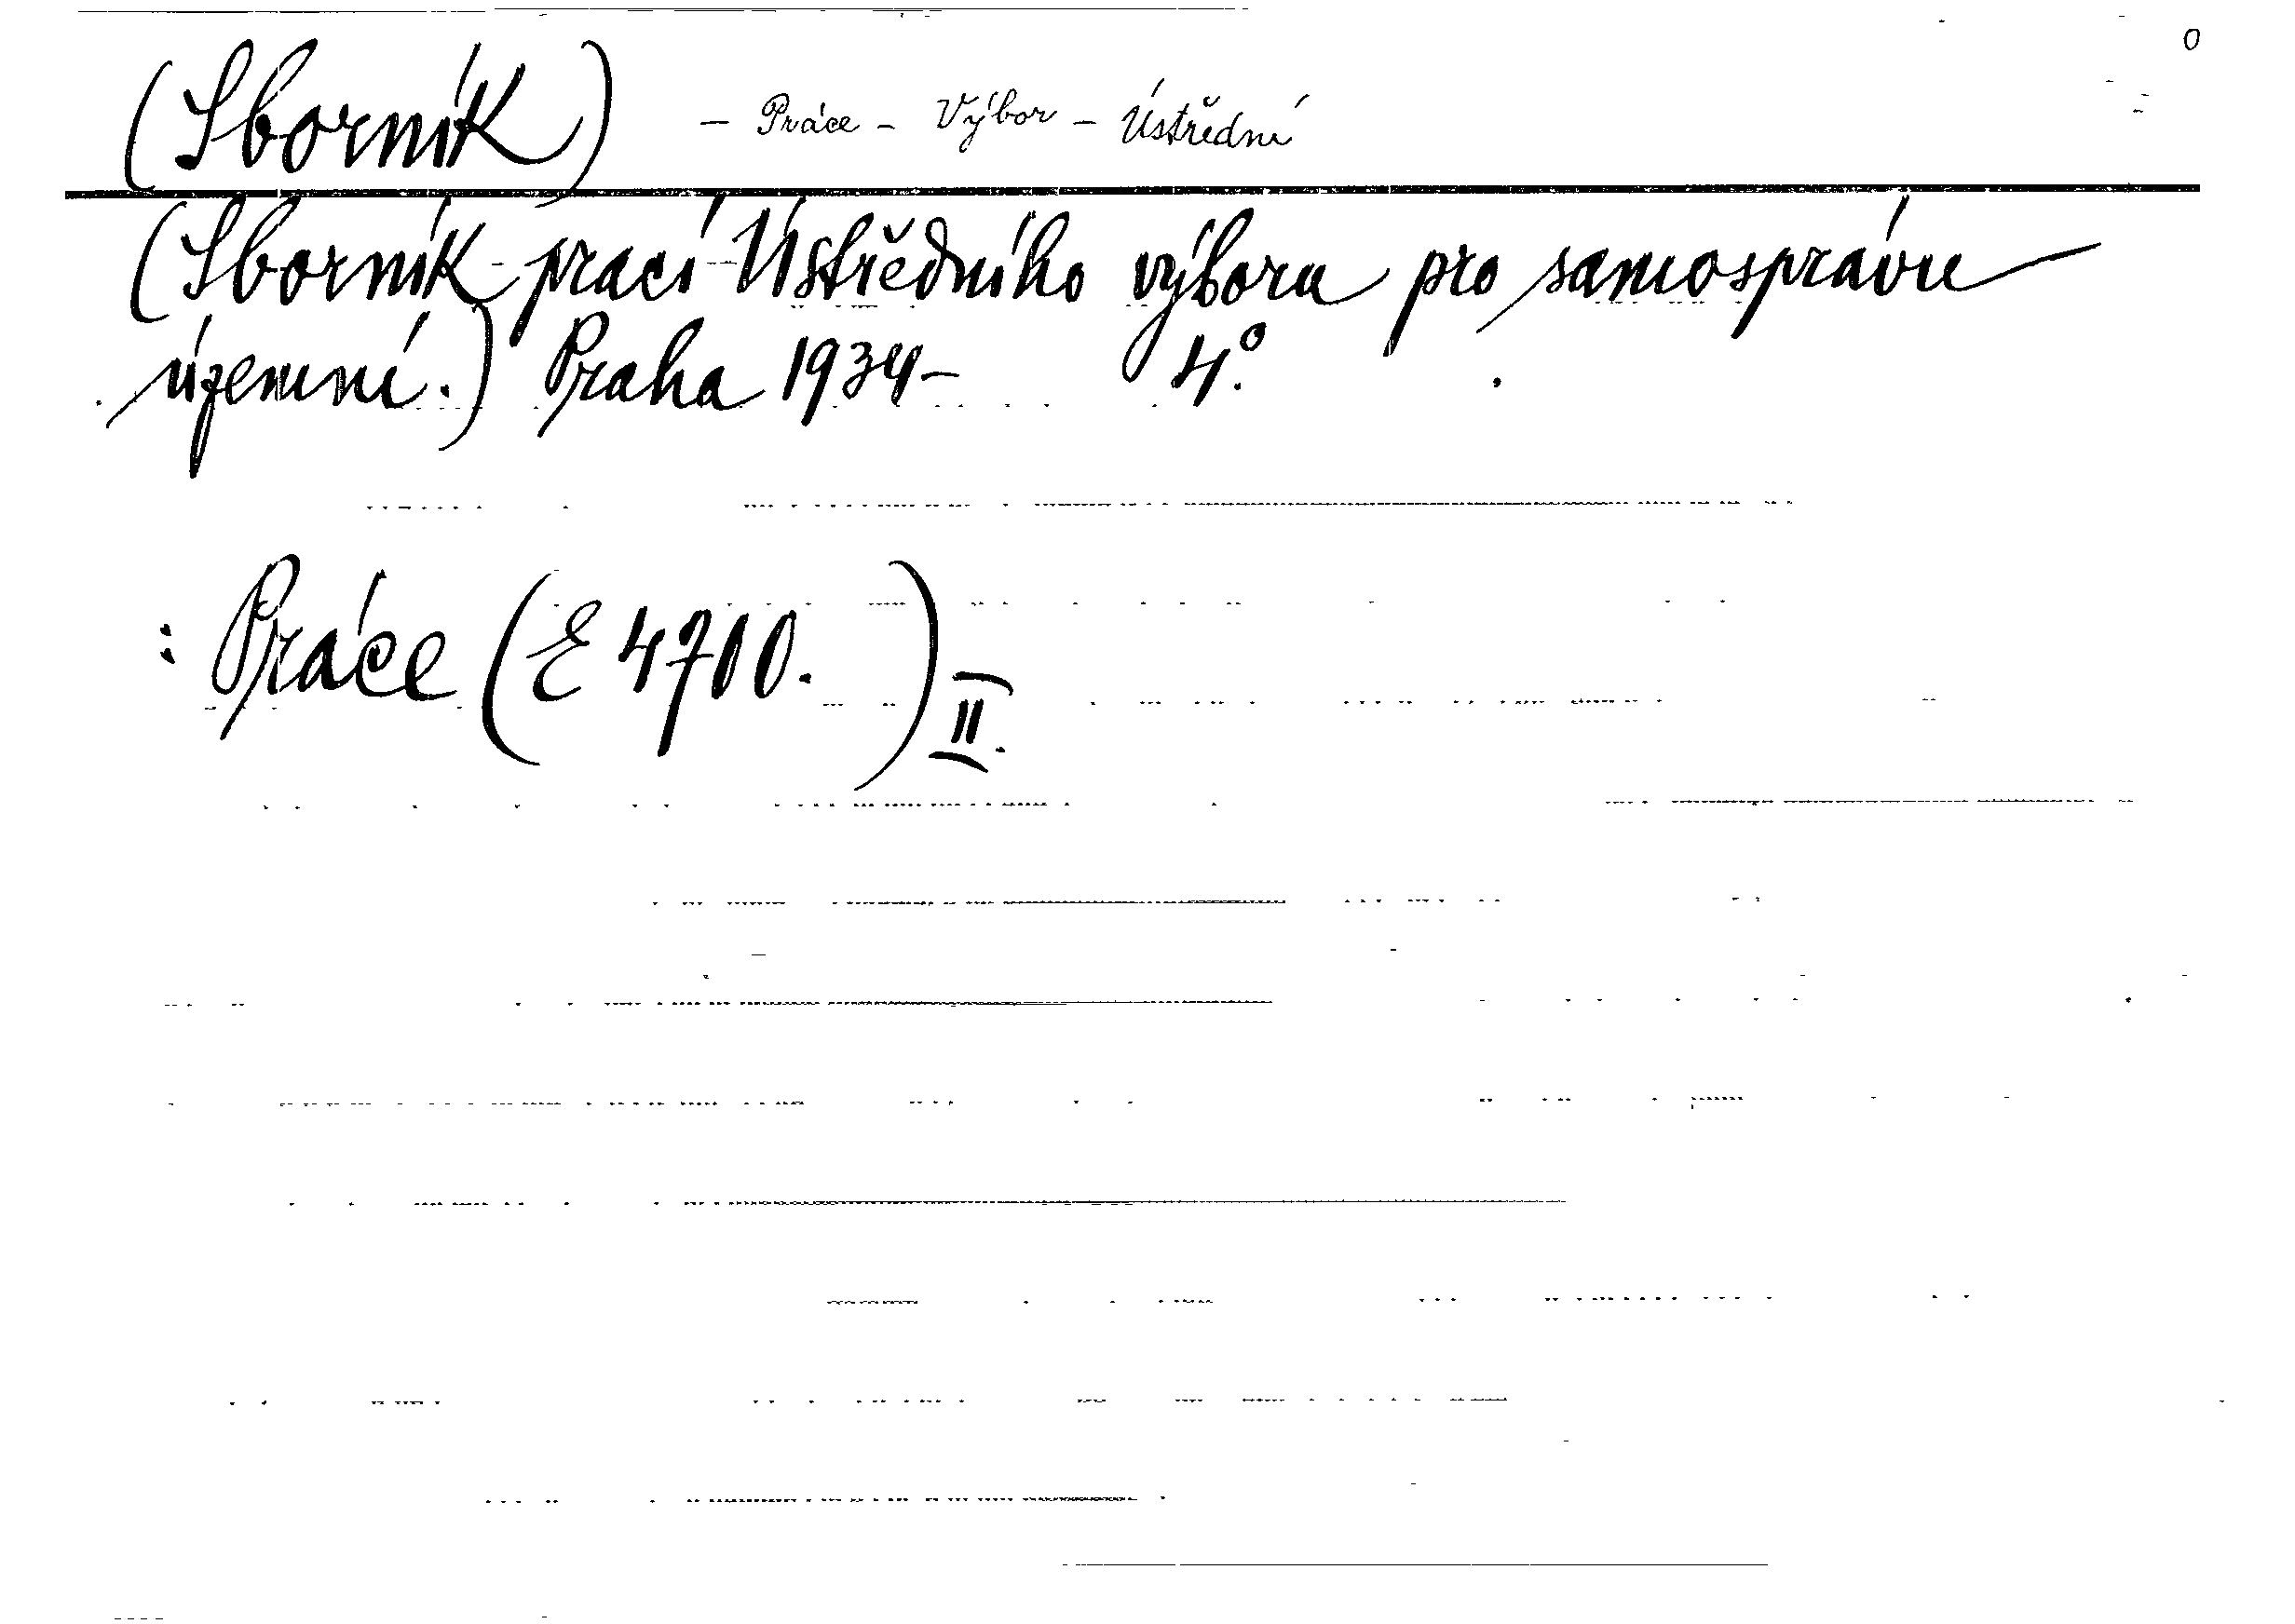 0
(Sborník) – Práce – Výbor – Ústřední
(Sborník prací Ústředního výboru pro samosprávu
území.) Praha 1934– 4°.
: Práce (E 4700. ) II.